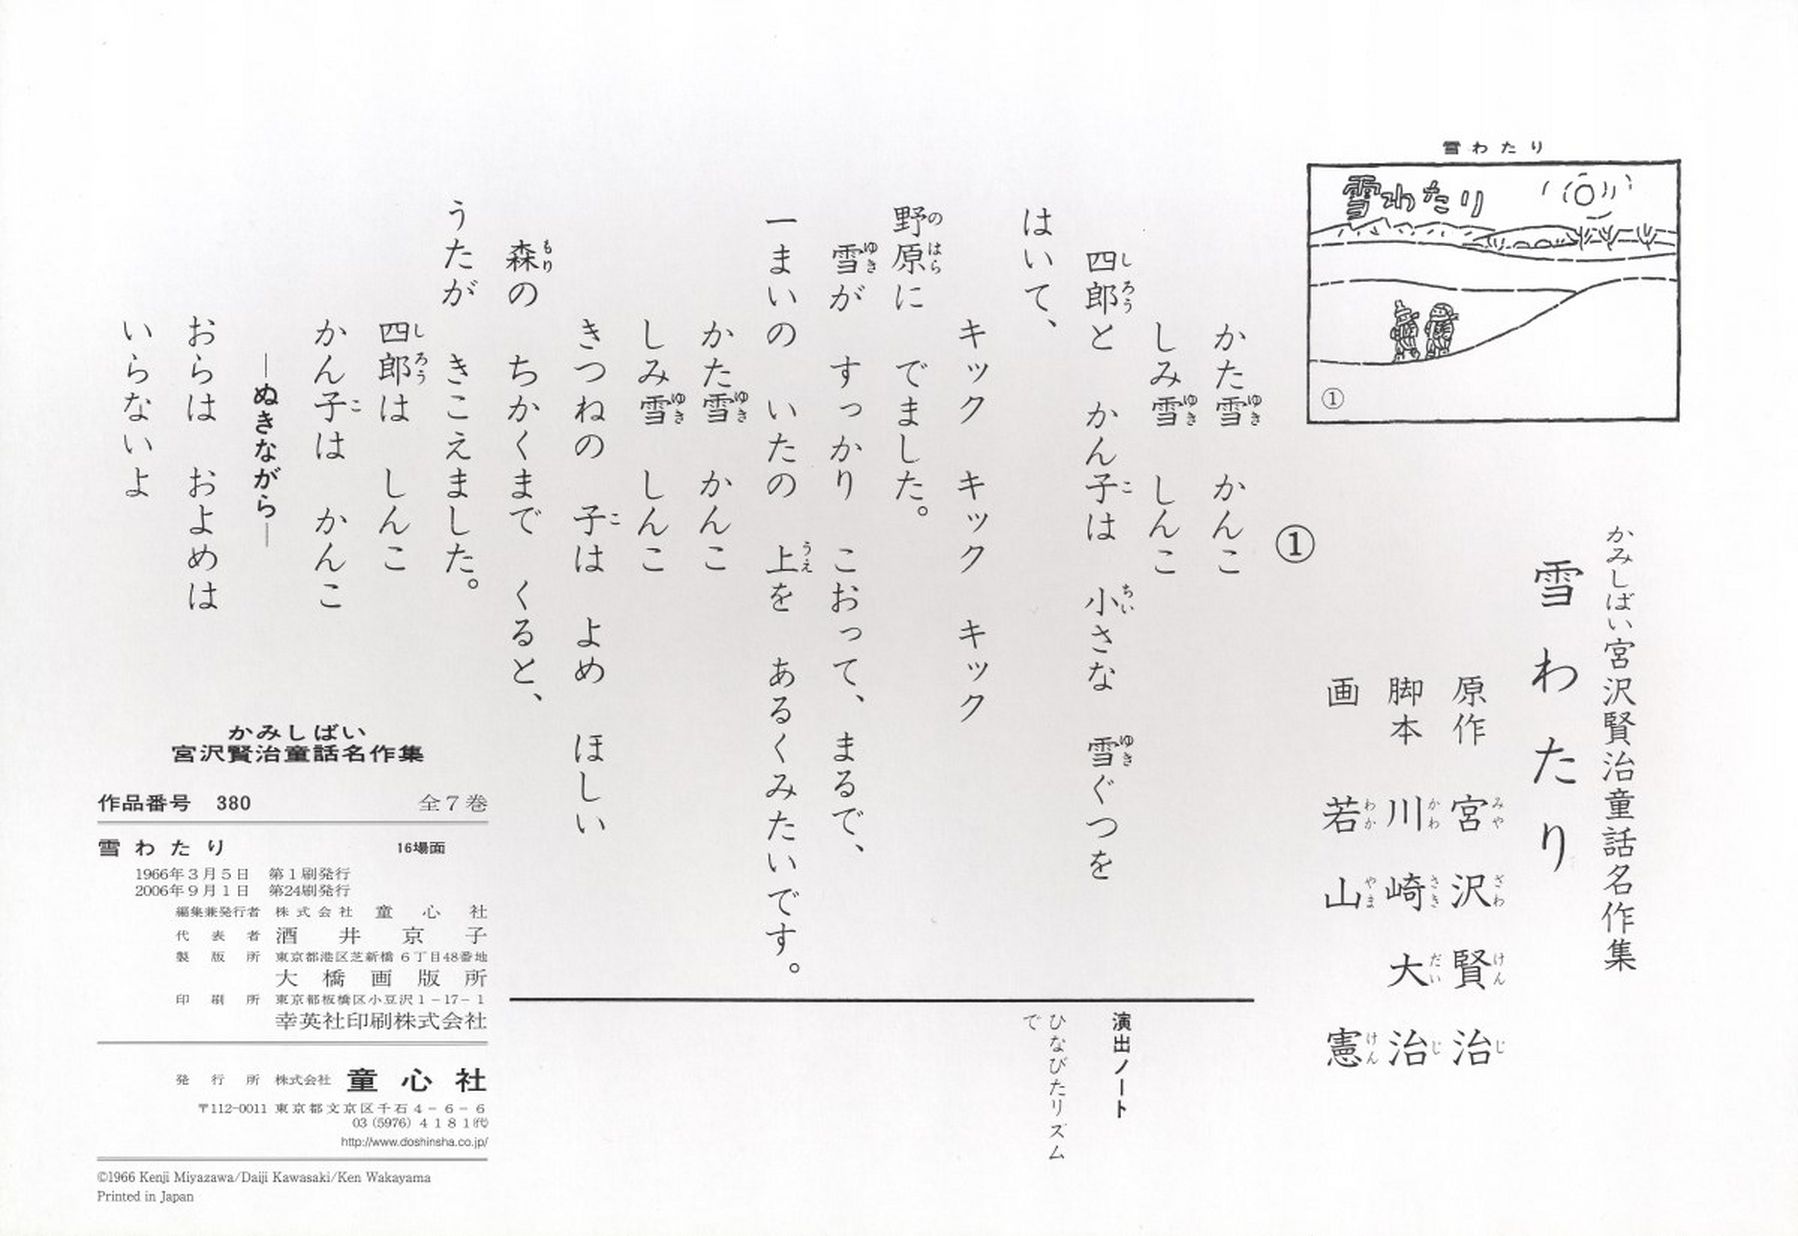 雪わたり
雪わたり
①
かみしばい宮沢賢治童話名作集
雪わたり
原作 宮沢賢治
脚本 川崎大治
画 若山憲
①
かた雪 かんこ
しみ雪 しんこ
四郎と かん子は 小さな 雪ぐつを
はいて、
キック キック キック
野原に でました。
雪が すっかり こおって、まるで、
一まいの いたの 上を あるくみたいです。
かた雪 かんこ
しみ雪 しんこ
きつねの 子は よめ ほしい
森の ちかくまで くると、
うたが きこえました。
四郎は しんこ
かん子は かんこ
―ぬきながら―
おらは およめは
いらないよ
演出ノート
ひなびたリズム
で
かみしばい
宮沢賢治童話名作集
作品番号 380 全7巻
雪わたり 16場面
1966年3月5日 第1刷発行
2006年9月1日 第24刷発行
編集兼発行者 株式会社 童心社
代表者 酒井京子
製版所 東京都港区芝新橋6丁目48番地
大橋画版所
印刷所 東京都板橋区小豆沢1-17-1
幸英社印刷株式会社
発行所 株式会社 童心社
〒112-0011 東京都文京区千石4-6-6
03(5976)4181㈹
http://www.doshinsha.co.jp/
©1966 Kenji Miyazawa/Daiji Kawasaki/Ken Wakayama
Printed in Japan